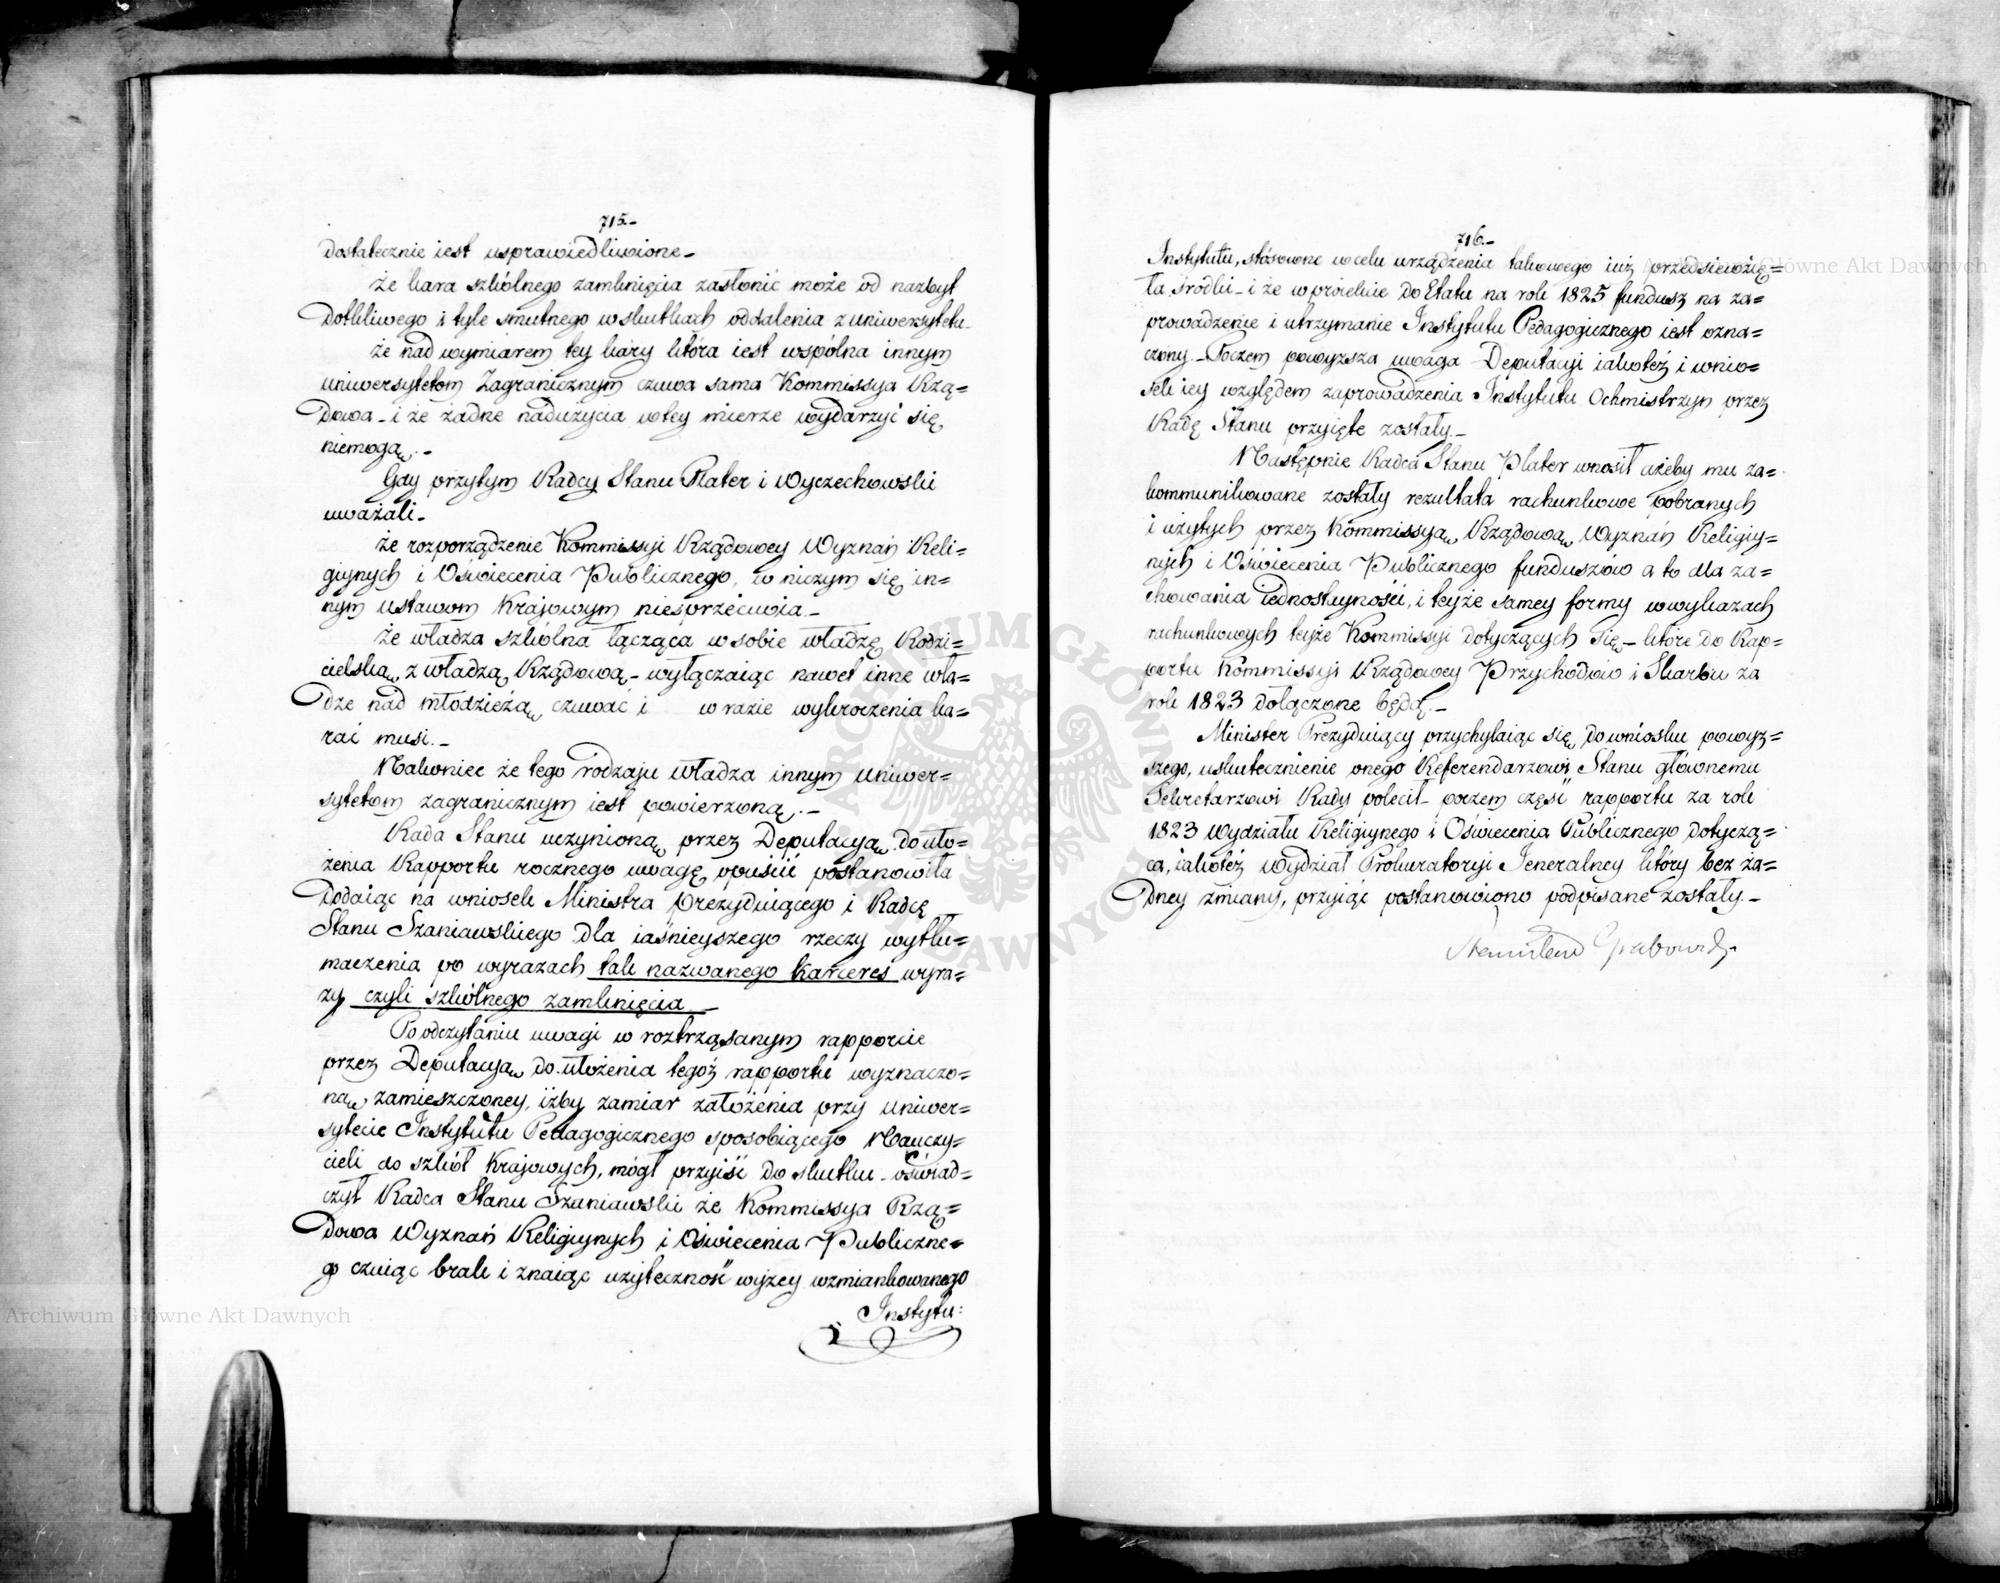 715.-
dostatecznie iest usprawiedliwione-
że kara szkólnego zamknięcia zasłonić może od nazbyt
dotkliwego i tyle smutnego w skutkach oddalenia z uniwersytetu-
że nad wymiarem tey kary która iest wspólna innym
uniwersytetom Zagranicznym czuwa sama Kommissya Rzą=
dowa - i że żadne nadużycia w tey mierze wydarzyć się
niemogą.-
Gdy przytym Radcy Stanu Plater i Wyczechowski
uważali-
że rozporządzenie Kommissyi Rządowey Wyznań Reli=
giynych i Oświecenia Publicznego, w niczym się in=
nym ustawom Krajowym niesprzeciwia-
że władza szkólna łącząca w sobie władzę Rodzi=
cielską z władzą Rządową - wyłączaiąc nawet inne wła=
dze nad młodzieżą czuwać i w razie wykroczenia ka=
rać musi.-
Nakoniec że tego rodzaju władza innym uniwer=
sytetom zagranicznym iest powierzoną.-
Rada Stanu uczynioną przez Deputacyą do uło=
żenia Rapportu rocznego uwagę opuścić postanowiła
dodaiąc na wniosek Ministra Prezyduiącego i Radcę
Stanu Szaniawskiego dla iaśnieyszego rzeczy wytłu=
maczenia po wyrazach tak nazwanego karceres wyra=
zy czyli szkólnego zamknięcia -
Po odczytaniu uwagi w roztrząsanym rapporcie
przez Deputacyą do ułożenia tegóż rapportu wyznaczo=
ną zamieszczoney, iżby zamiar założenia przy uniwer=
sytecie Instytutu Pedagogicznego sposobiącego Nauczy=
cieli do szkół Krajowych, mógł przyiść do skutku - oświad=
czył Radca Stanu Szaniawski że Kommissya Rzą=
dowa Wyznań Religiynych i Oświecenia Publiczne=
go czuiąc brak i znaiąc użyteczność wyżey wzmiankowanego
Instytu:
716.-
Instytutu, stósowne w celu urządzenia takowego iuż przedsiewzię=
ła środki - i że w proiekcie do Etatu na rok 1825 fundusz na za=
prowadzenie i utrzymanie Instytutu Pedagogicznego iest ozna=
czony - Poczem powyższa uwaga Deputacyi iakoteż i wnio=
sek iey względem zaprowadzenia Instytutu Ochmistrzyń przez
Radę Stanu przyięte zostały.-
Następnie Radca Stanu Plater wnosił ażeby mu za=
kommunikowane zostały rezultata rachunkowe pobranych
i użytych przez Kommissyą Rządową Wyznań Religiy=
nych i Oświecenia Publicznego funduszów a to dla za=
chowania iednostayności, i teyże samey formy w wykazach
rachunkowych teyże Kommissyi dotyczących się - które do Rap=
portu Kommissyi Rządowey Przychodów i Skarbu za
rok 1823 dołączone będą.-
Minister Prezyduiący przychylaiąc się do wniosku powyż=
szego, uskutecznienie onego Referendarzowi Stanu głównemu
Sekretarzowi Rady polecił - poczem część rapportu za rok
1823 Wydziału Religiynego i Oświecenia Publicznego dotyczą=
ca, iakoteż wydział Prokuratoryi Jeneralney który bez ża=
dney zmiany, przyiąć postanowiono podpisane zostały.-
Stanisław Grabowski
Archiwum Główne Akt Dawnych
Archiwum Główne Akt Dawnych
ARCHIWUM GŁÓWNE AKT DAWNYCH